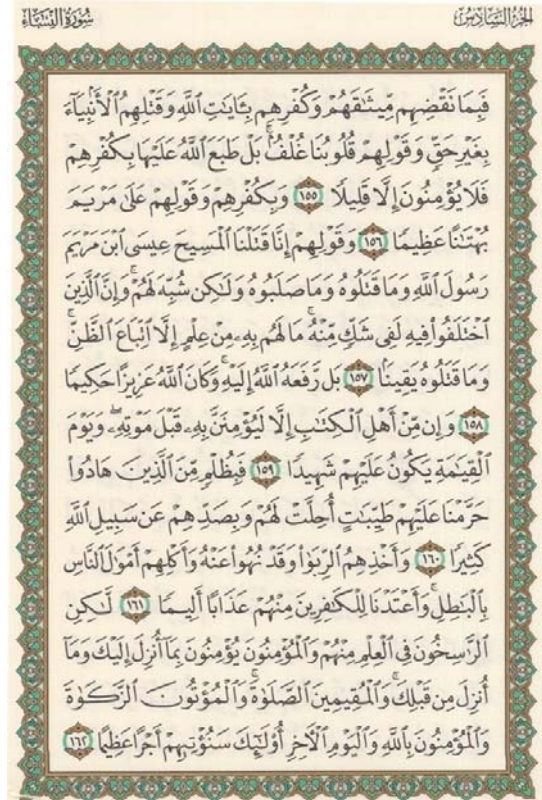 الجزء السادس
سورة النساء
فَبِمَا نَقْضِهِم مِّيثَٰقَهُمْ وَكُفْرِهِم بِـَٔايَٰتِ ٱللَّهِ وَقَتْلِهِمُ ٱلْأَنۢبِيَآءَ
بِغَيْرِ حَقٍّ وَقَوْلِهِمْ قُلُوبُنَا غُلْفٌۢ ۚ بَلْ طَبَعَ ٱللَّهُ عَلَيْهَا بِكُفْرِهِمْ
فَلَا يُؤْمِنُونَ إِلَّا قَلِيلًا ١٥٥ وَبِكُفْرِهِمْ وَقَوْلِهِمْ عَلَىٰ مَرْيَمَ
بُهْتَٰنًا عَظِيمًا ١٥٦ وَقَوْلِهِمْ إِنَّا قَتَلْنَا ٱلْمَسِيحَ عِيسَى ٱبْنَ مَرْيَمَ
رَسُولَ ٱللَّهِ وَمَا قَتَلُوهُ وَمَا صَلَبُوهُ وَلَٰكِن شُبِّهَ لَهُمْ ۚ وَإِنَّ ٱلَّذِينَ
ٱخْتَلَفُوا۟ فِيهِ لَفِى شَكٍّ مِّنْهُ ۚ مَا لَهُم بِهِۦ مِنْ عِلْمٍ إِلَّا ٱتِّبَاعَ ٱلظَّنِّ ۚ
وَمَا قَتَلُوهُ يَقِينًۢا ١٥٧ بَل رَّفَعَهُ ٱللَّهُ إِلَيْهِ ۚ وَكَانَ ٱللَّهُ عَزِيزًا حَكِيمًا
١٥٨ وَإِن مِّنْ أَهْلِ ٱلْكِتَٰبِ إِلَّا لَيُؤْمِنَنَّ بِهِۦ قَبْلَ مَوْتِهِۦ ۖ وَيَوْمَ
ٱلْقِيَٰمَةِ يَكُونُ عَلَيْهِمْ شَهِيدًا ١٥٩ فَبِظُلْمٍ مِّنَ ٱلَّذِينَ هَادُوا۟
حَرَّمْنَا عَلَيْهِمْ طَيِّبَٰتٍ أُحِلَّتْ لَهُمْ وَبِصَدِّهِمْ عَن سَبِيلِ ٱللَّهِ
كَثِيرًا ١٦٠ وَأَخْذِهِمُ ٱلرِّبَوٰا۟ وَقَدْ نُهُوا۟ عَنْهُ وَأَكْلِهِمْ أَمْوَٰلَ ٱلنَّاسِ
بِٱلْبَٰطِلِ ۚ وَأَعْتَدْنَا لِلْكَٰفِرِينَ مِنْهُمْ عَذَابًا أَلِيمًا ١٦١ لَّٰكِنِ
ٱلرَّٰسِخُونَ فِى ٱلْعِلْمِ مِنْهُمْ وَٱلْمُؤْمِنُونَ يُؤْمِنُونَ بِمَآ أُنزِلَ إِلَيْكَ وَمَآ
أُنزِلَ مِن قَبْلِكَ ۚ وَٱلْمُقِيمِينَ ٱلصَّلَوٰةَ ۚ وَٱلْمُؤْتُونَ ٱلزَّكَوٰةَ
وَٱلْمُؤْمِنُونَ بِٱللَّهِ وَٱلْيَوْمِ ٱلْـَٔاخِرِ أُو۟لَٰٓئِكَ سَنُؤْتِيهِمْ أَجْرًا عَظِيمًا ١٦٢